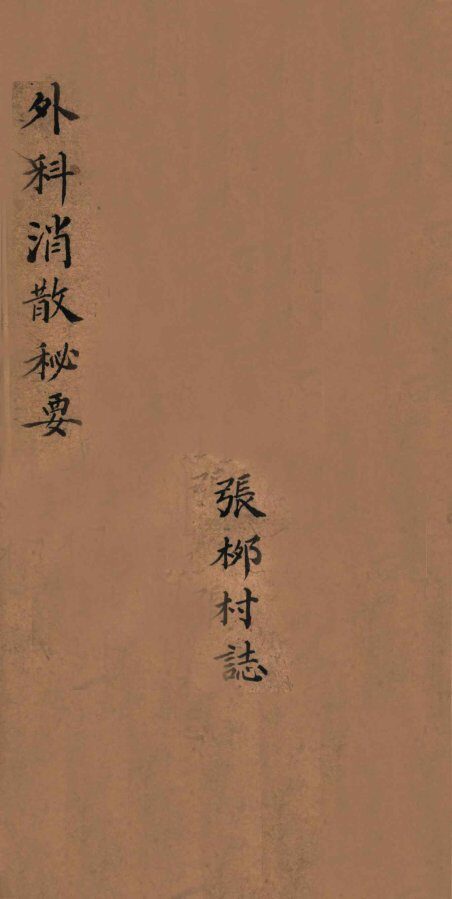 外科消散秘要
張栁村誌